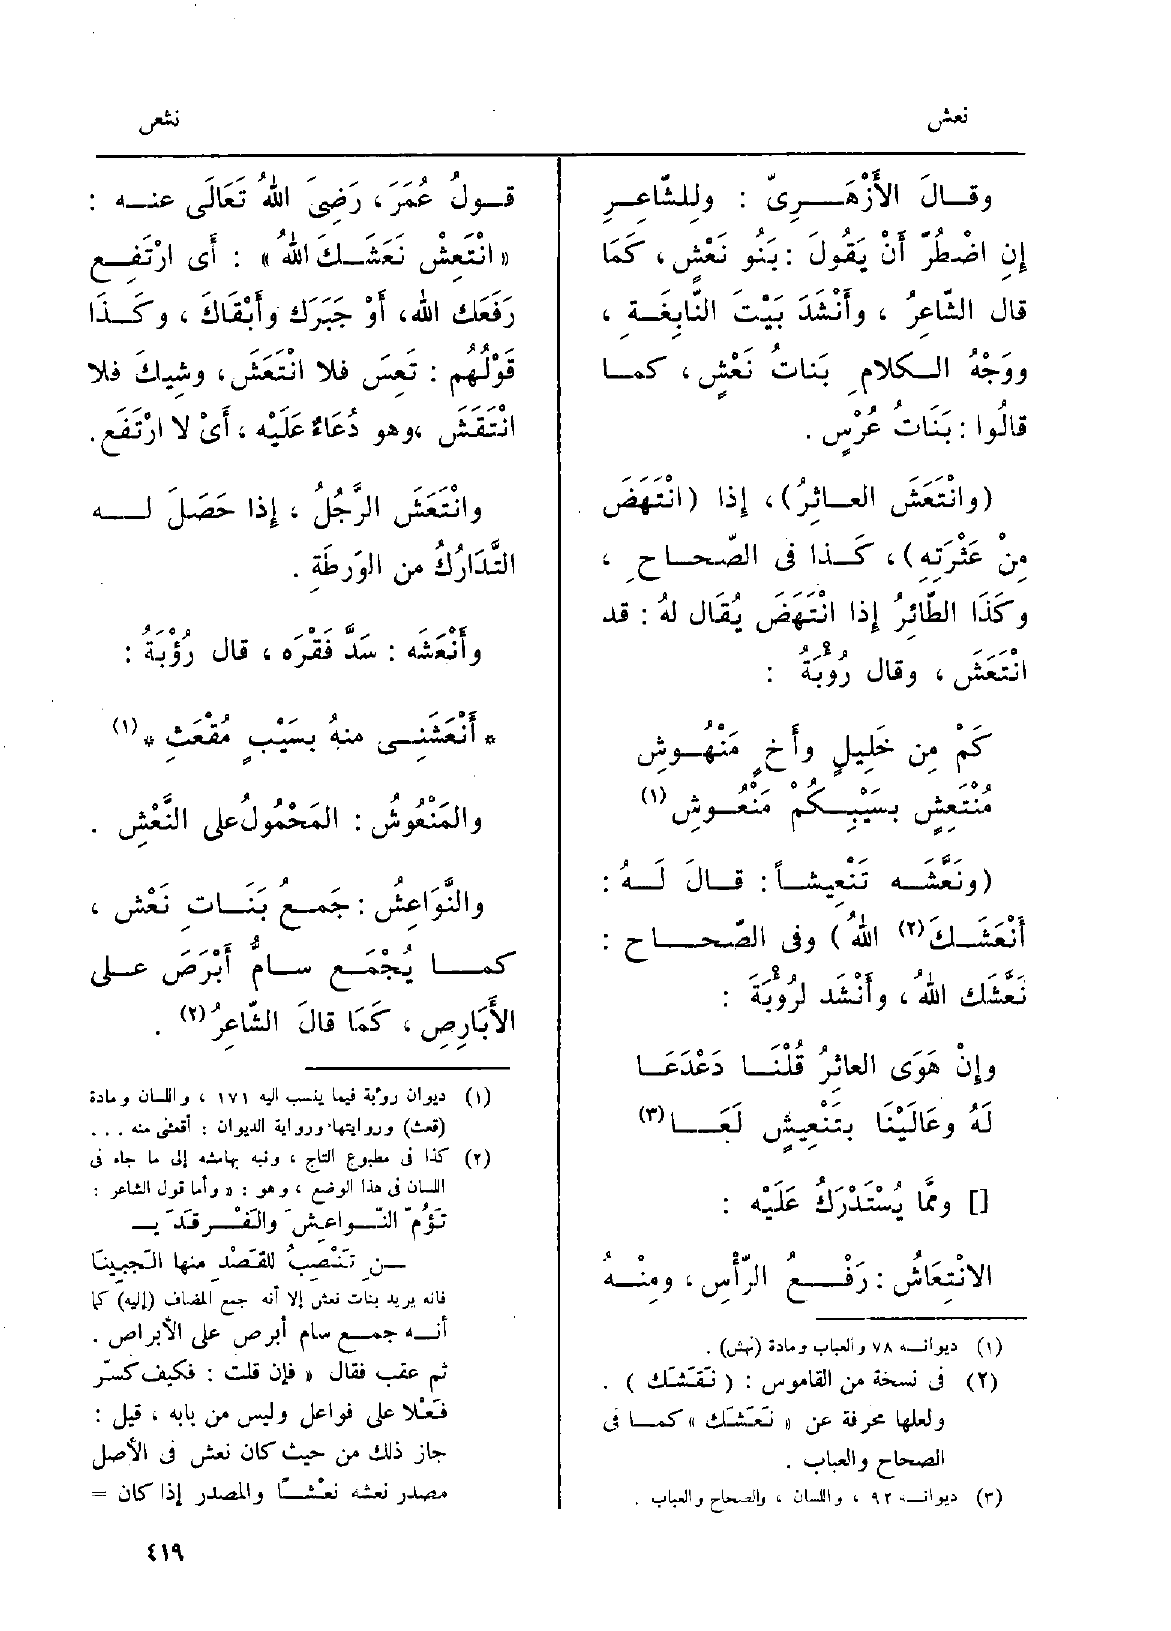 نعش
نعش
وقــالَ الأَزْهَــرِىّ : ولِلشّاعِــرِ
إِن اضْطُرّ أَنْ يَقُولَ : بَنُو نَعْشٍ ، كَمَا
قال الشّاعِرُ ، وأَنْشَدَ بَيْتَ النّابِغَـةِ ،
ووَجْهُ الـكلامِ بَناتُ نَعْشٍ ، كمـا
قالُوا : بَنَاتُ عُرْسٍ .
(وانْتَعَشَ العــاثِرُ) ، إِذا (انْتَهَضَ
مِنْ عَثْرَتِهِ) ، كَــذا فى الصّحــاحِ ،
وكَذَا الطّائِرُ إِذا انْتَهَضَ يُقَال لهُ : قد
انْتَعَشَ ، وقال رُؤْبَةُ :
كَمْ مِن خَلِيلٍ وأَخٍ مَنْهُــوشِ
مُنْتَعِشٍ بسَيْبِــكُمْ مَنْعُــوشِ (١)
(ونَعَّشَــه تَنْعِيشــاً : قــالَ لَــهُ :
أَنْعَشَــكَ (٢) اللهُ ) وفى الصّحــاح :
نَعَّشَك اللهُ ، وأَنْشد لرُؤْبَةَ :
وإِنْ هَوَى العاثِرُ قُلْنَــا دَعْدَعَــا
لَهُ وعَالَيْنَا بتَنْعِيشٍ لَعَــا (٣)
[] وممّا يُسْتَدْرَكُ عَلَيْه :
الانْتِعَاشُ : رَفْــعُ الرّأْسِ ، ومِنْــهُ
(١) ديوانــه ٧٨ والعباب ومادة (نهش) .
(٢) فى نسخة من القاموس : ( نَقَشَك ) .
ولعلها محرفة عن « نَعَشَك » كمــا فى
الصحاح والعباب .
(٣) ديوانــه ٩٢ ، واللسان ، والصحاح والعباب .
قــولُ عُمَرَ ، رَضِىَ اللهُ تَعَالَى عنــه :
« انْتَعِشْ نَعَشَــكَ اللهُ » : أى ارْتَفِــع
رَفَعَك الله ، أَوْ جَبَرَك وأَبْقَاكَ ، وكَــذَا
قَوْلُهُم : تَعِسَ فلا انْتَعَشَ ، وشِيكَ فلا
انْتَقَشَ ، وهو دُعَاءٌ عَلَيْه ، أَىْ لا ارْتَفَع .
وانْتَعَشَ الرَّجُلُ ، إِذا حَصَلَ لــه
التَّدَارُكُ من الوَرطَةِ .
وأَنْعَشَه : سَدَّ فَقْرَه ، قال رُؤْبَةُ :
* أَنْعَشَنِــى منهُ بسَيْبٍ مُقْعَثِ * (١)
والمَنْعُوشُ : المَحْمُولُ على النَّعْشِ .
والنَّوَاعِشُ : جَمــعُ بَنَــاتِ نَعْش ،
كمــا يُجْمَــع ســامُّ أَبْرَصَ علــى
الأَبَارِصِ ، كَمَا قالَ الشّاعِرُ (٢) .
(١) ديوان رؤبة فيما ينسب اليه ١٧١ ، واللسان ومادة
(قعث) وروايتها ورواية الديوان : أقعثنى منه ...
(٢) كذا فى مطبوع التاج ، ونبه بهامشه إلى ما جاء فى
اللسان فى هذا الوضع ، وهو : « وأما قول الشاعر :
تَؤُمّ النّــواعِشَ والفَــرقَدَ يــ
ــنِ تَنْصِبُ للقَصْدِ منها الجَبِينَا
فانه يريد بنات نعش إلا أنه جمع المضاف (إليه) كما
أنــه جمــع سام أبرص على الأبراص .
ثم عقب فقال « فإن قلت : فكيف كسّر
فَعْلا على فواعل وليس من بابه ، قيل :
جاز ذلك من حيث كان نعش فى الأصل
مصدر نعشه نَعْشــًا والمصدر إذا كان =
٤١٩